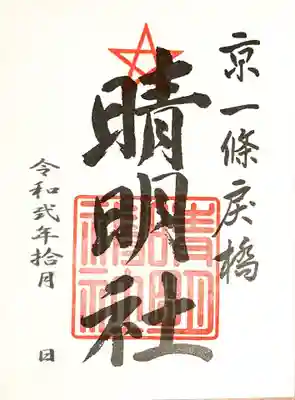 京一條戻橋
晴明社
晴明神社
令和弐年拾月　日